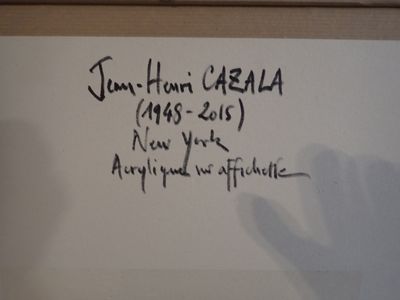 Jean-Henri CAZALA
(1948-2015)
New York
Acrylique sur affichette